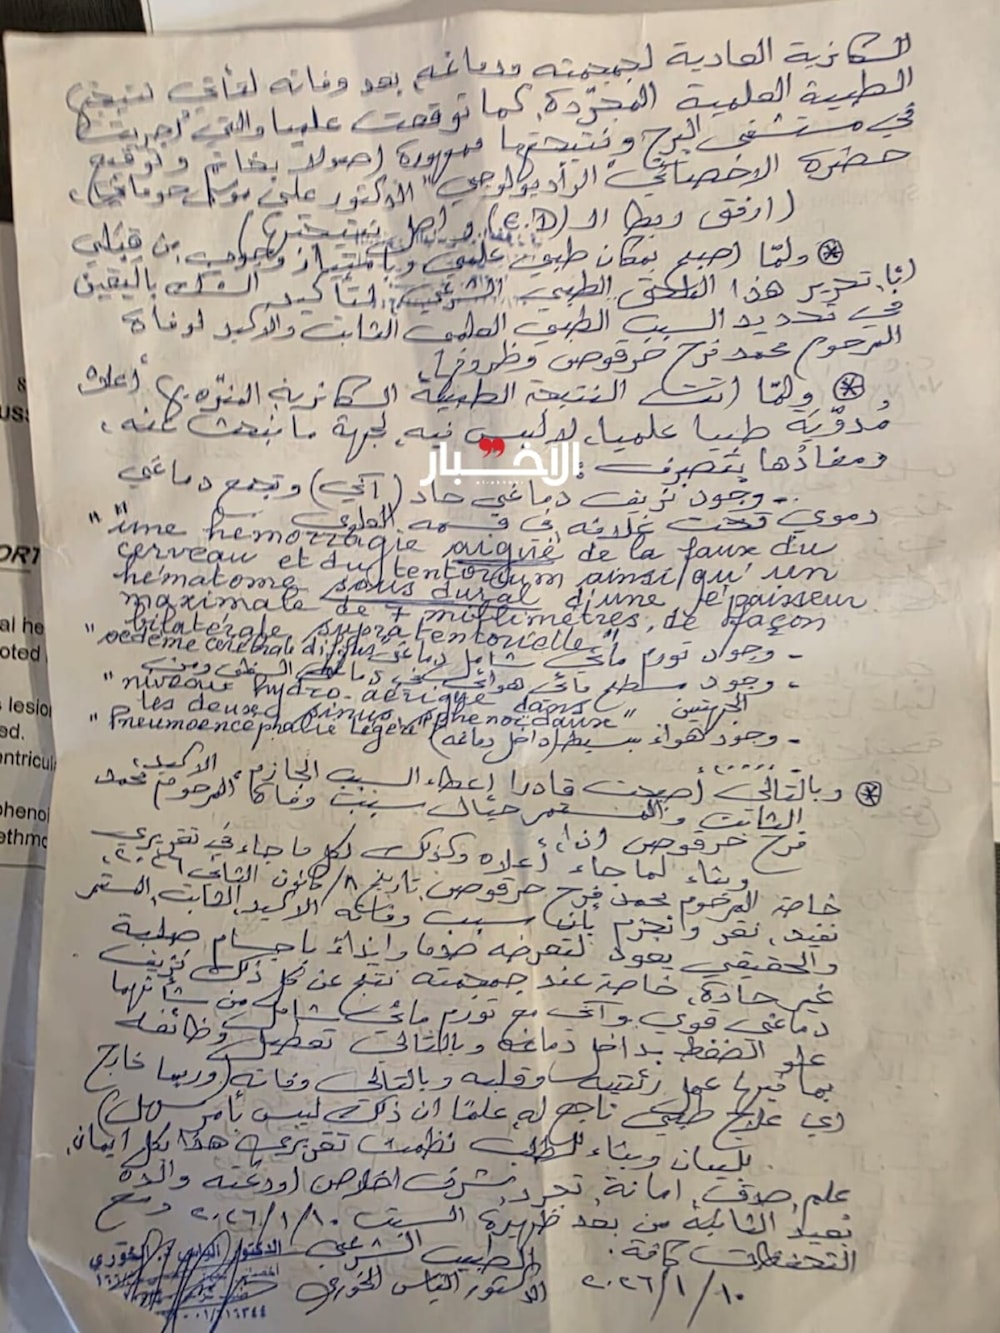 السكانرية العادية لجمجمته ودماغه بعد وفاته لتأتي نتيجتها
الطبية العلمية المجرّدة، كما توقعت علميا والتي أجريت
في مستشفى البرج ونتيجتها ممهورة اصولا بخاتم وتوقيع
حضرة الاخصائي الراديولوجي "الدكتور علي حوماني"،
(ارفق ربطا الـ (C.D) و نتيجتها)
ولمّا اصبح بمكان طبي علمي وبامتياز وبموجب من قِبَلي
انا، تحرير هذا الملحق الطبي الشرعي لتأكيد الشك باليقين
في تحديد السبب الطبي العلمي الثابت والاكيد لوفاة
المرحوم محمد فرح حرقوص وظروفها.
ولمّا اتت النتيجة الطبية السكانرية المنوّه بها أعلاه
مُدوّيَة طبيا علميا، لا لبس فيه، لجهة ما نبحث عنه،
ومفادُها بتصرف:
الأخبار
- وجود نزيف دماغي حاد (آني) وتجمع دماغي
دموي تحت غلافه في قسمه العلوي
"une hémorragie aiguë de la faux du
cerveau et du tentorium ainsi qu'un
hématome sous dural d'une épaisseur
maximale de 7 millimètres, de façon
bilatérale supratentorielle"
- وجود تورم مائي شامل دماغي "oedème cérébrale diffus"
- وجود مسطح مائي هوائي في
الجهتين "niveau hydro-aérique dans
les deux sinus sphenoïdaux"
- وجود هواء بسيط (داخل دماغه) "Pneumoencephalie légère"
وبالتالي أصبحت قادرا إعطاء السبب الجازم، الاكيد،
الثابت والمستمر حيال سبب وفاة المرحوم محمد
فرح حرقوص اذا،
وبناء لما جاء أعلاه وكذلك لكل ما جاء في تقريري
خاصة المرحوم محمد فرح حرقوص تاريخ ٨/كانون الثاني ٢٠٢٦،
نفيد، نقر ونجزم بأن سبب وفاته الاكيد، الثابت، المستمر
والحقيقي يعود لتعرضه صدما وإيذاءً بأجسام صلبة
غير حادة، خاصة عند جمجمته نتج عن كل ذلك نزيف
دماغي قوي وآني مع تورم مائي شامل من شأنهما
علو الضغط بداخل دماغه وبالتالي تعطيل وظائفه
بما فيها عمل رئتيه وقلبه وبالتالي وفاته (وربما خارج
اي علاج طبي ناجع له علمًا ان ذلك ليس بأمر سهل)
للبيان وبناء للطلب نظمت تقريري هذا بكل ايمان،
علم، صدق، امانة، تجرد، شرف اخلاص اودعته والده
بُعيد الثانية من بعد ظهيرة السبت ٢٠٢٦/١/١٠ ومع
التحفظات كافة.
الطبيب الشرعي
الدكتور الياس الخوري
٢٠٢٦/١/١٠
ORT
ed.